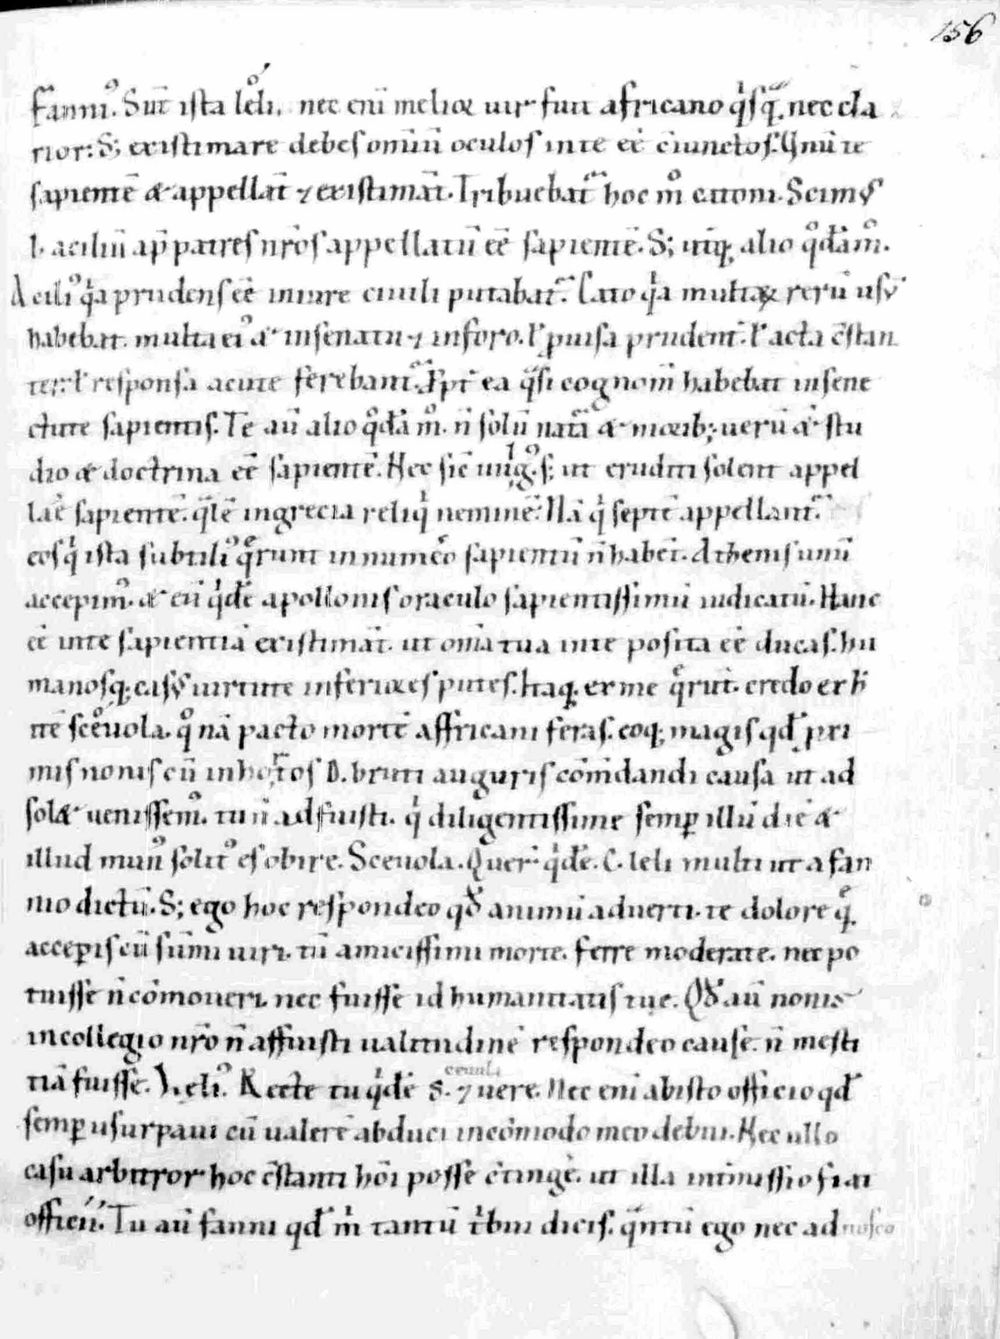 156
fanni᷒. Sūt ista lęli. nec enī melior uir fuit africano q̊sq̄. nec cla
rior: S; existimare debes om̄iū oculos in te eē ɔiunctos. Vnū te
sapientē & appellāt ⁊ existimāt. Tribuebat᷑ hoc m̊ catoni. Scim᷒
l. aciliū ap̄ patres nr̄os appellatū eē sapientē. S; utq; alio q̊dā m̊.
Acili᷒ q̇a prudens eē in iure ciuili putabat᷑. Cato q̇a multaꝝ rerū usū
habebat. multa ei᷒ & in senatu ⁊ in foro. ł ꝓuisa prudent̄. ł acta ɔ̄stan
ter: ł responsa acute ferebant᷑. ꝓpt̄ ea q̄si cognom̄ habebat in sene
ctute sapientis. Te aū alio q̊dā m̊. n̄ solū nat᷑a & morib; uerū & stu
dio & doctrina eē sapientē. Nec sic̄ uulg᷒ s; ut eruditi solent appel
lar̄e sapientē. q̄lē in grecia reliq̇ neminē. Nā q̇ septē appellant᷑.
eos q̇ ista subtili᷒ q̄runt in num̄o sapientiū n̄ habēt. Athenis unū
accepim᷒. & eū q̇dē apollonis oraculo sapientissimū iudicatū. Hanc
eē in te sapientiā existimāt. ut om̄ia tua in te posita eē ducas. hu
manosq; casus uirtute inferiores putes. Itaq; ex me q̄rūt. credo ex h̄
tē sceuola. q̊ nā pacto mortē affricani feras. eoq; magis qđ pri
mis nonis cū in hortos D. bruti auguris cōm̄tandi causa ut ad
sol& uenissem᷒. tu n̄ adfuisti. q̇ diligentissime semꝑ illū diē &
illud mun᷒ solit᷒ es obire. Sceuola. Quer᷑ q̇dē. C. leli multi ut a fan
nio dictū. S; ego hoc respondeo qđ animū aduerti. te dolorē q̄
acceꝑis cū sūmi uiri. tū amicissimi morte. ferre moderate. nec po
tuisse n̄ cōmoueri. nec fuisse id humanitatis tuę. Qđ aū nonis
in collegio nr̄o n̄ affuisti ualitudinē respondeo causę. n̄ mesti
tiā fuisse. Leli᷒. Recte tu q̇dē s. ⁊ uere. Nec enī ab isto officio qđ
semꝑ usurpaui cū ualerē abduci incōmodo meo debui. Nec ullo
casu arbitror hoc ɔ̄stanti hōi posse ɔ̄tingē. ut illa int̄missio fiat
officii. Tu aū fanni qđ ṁ tantū t̄bui dicis. q̄ntū ego nec adnosco